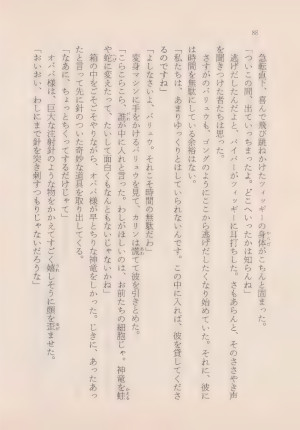 急転直下、喜んで飛び跳ねかけたフィッギーの身体がこちんと固まった。
「ついこの間、出ていっちまったよ。どこへいったかは知らんね」
逃げだしたんだよと、パイパーがフィッギーに耳打ちした。さもあらんと、そのささやき声
を聞きつけた者たちは思った。
さすがのバリュウも、ゴングのようにここから逃げだしたくなり始めていた。それに、彼に
は時間を無駄にしている余裕はない。
「私たちは、あまりゆっくりとはしていられないんです。この中に入れば、彼を貸してくださ
るのですね」
「よしなさいよ、バリュウ。それこそ時間の無駄だわ」
変身マシンに手をかけるバリュウを見て、カリンは慌てて彼を引きとめた。
「こらこらこら、誰が中に入れと言った。わしがほしいのは、お前たちの細胞じゃ。神竜を蛙
や蛇に変えたって、たいして面白くもなんともないじゃないかね」
箱の中をごそごそやりながら、オババ様が早とちりな神竜をしかった。じきに、あったあっ
たと言って先に針のついた奇妙な道具を取り出してくる。
「なあに、ちょっとちくってするだけじゃて」
オババ様は、巨大な注射針のような物をかかえてすごく嬉しそうに顔を歪ませた。
「おいおい、わしにまで針を突き刺すつもりじゃないだろうな」